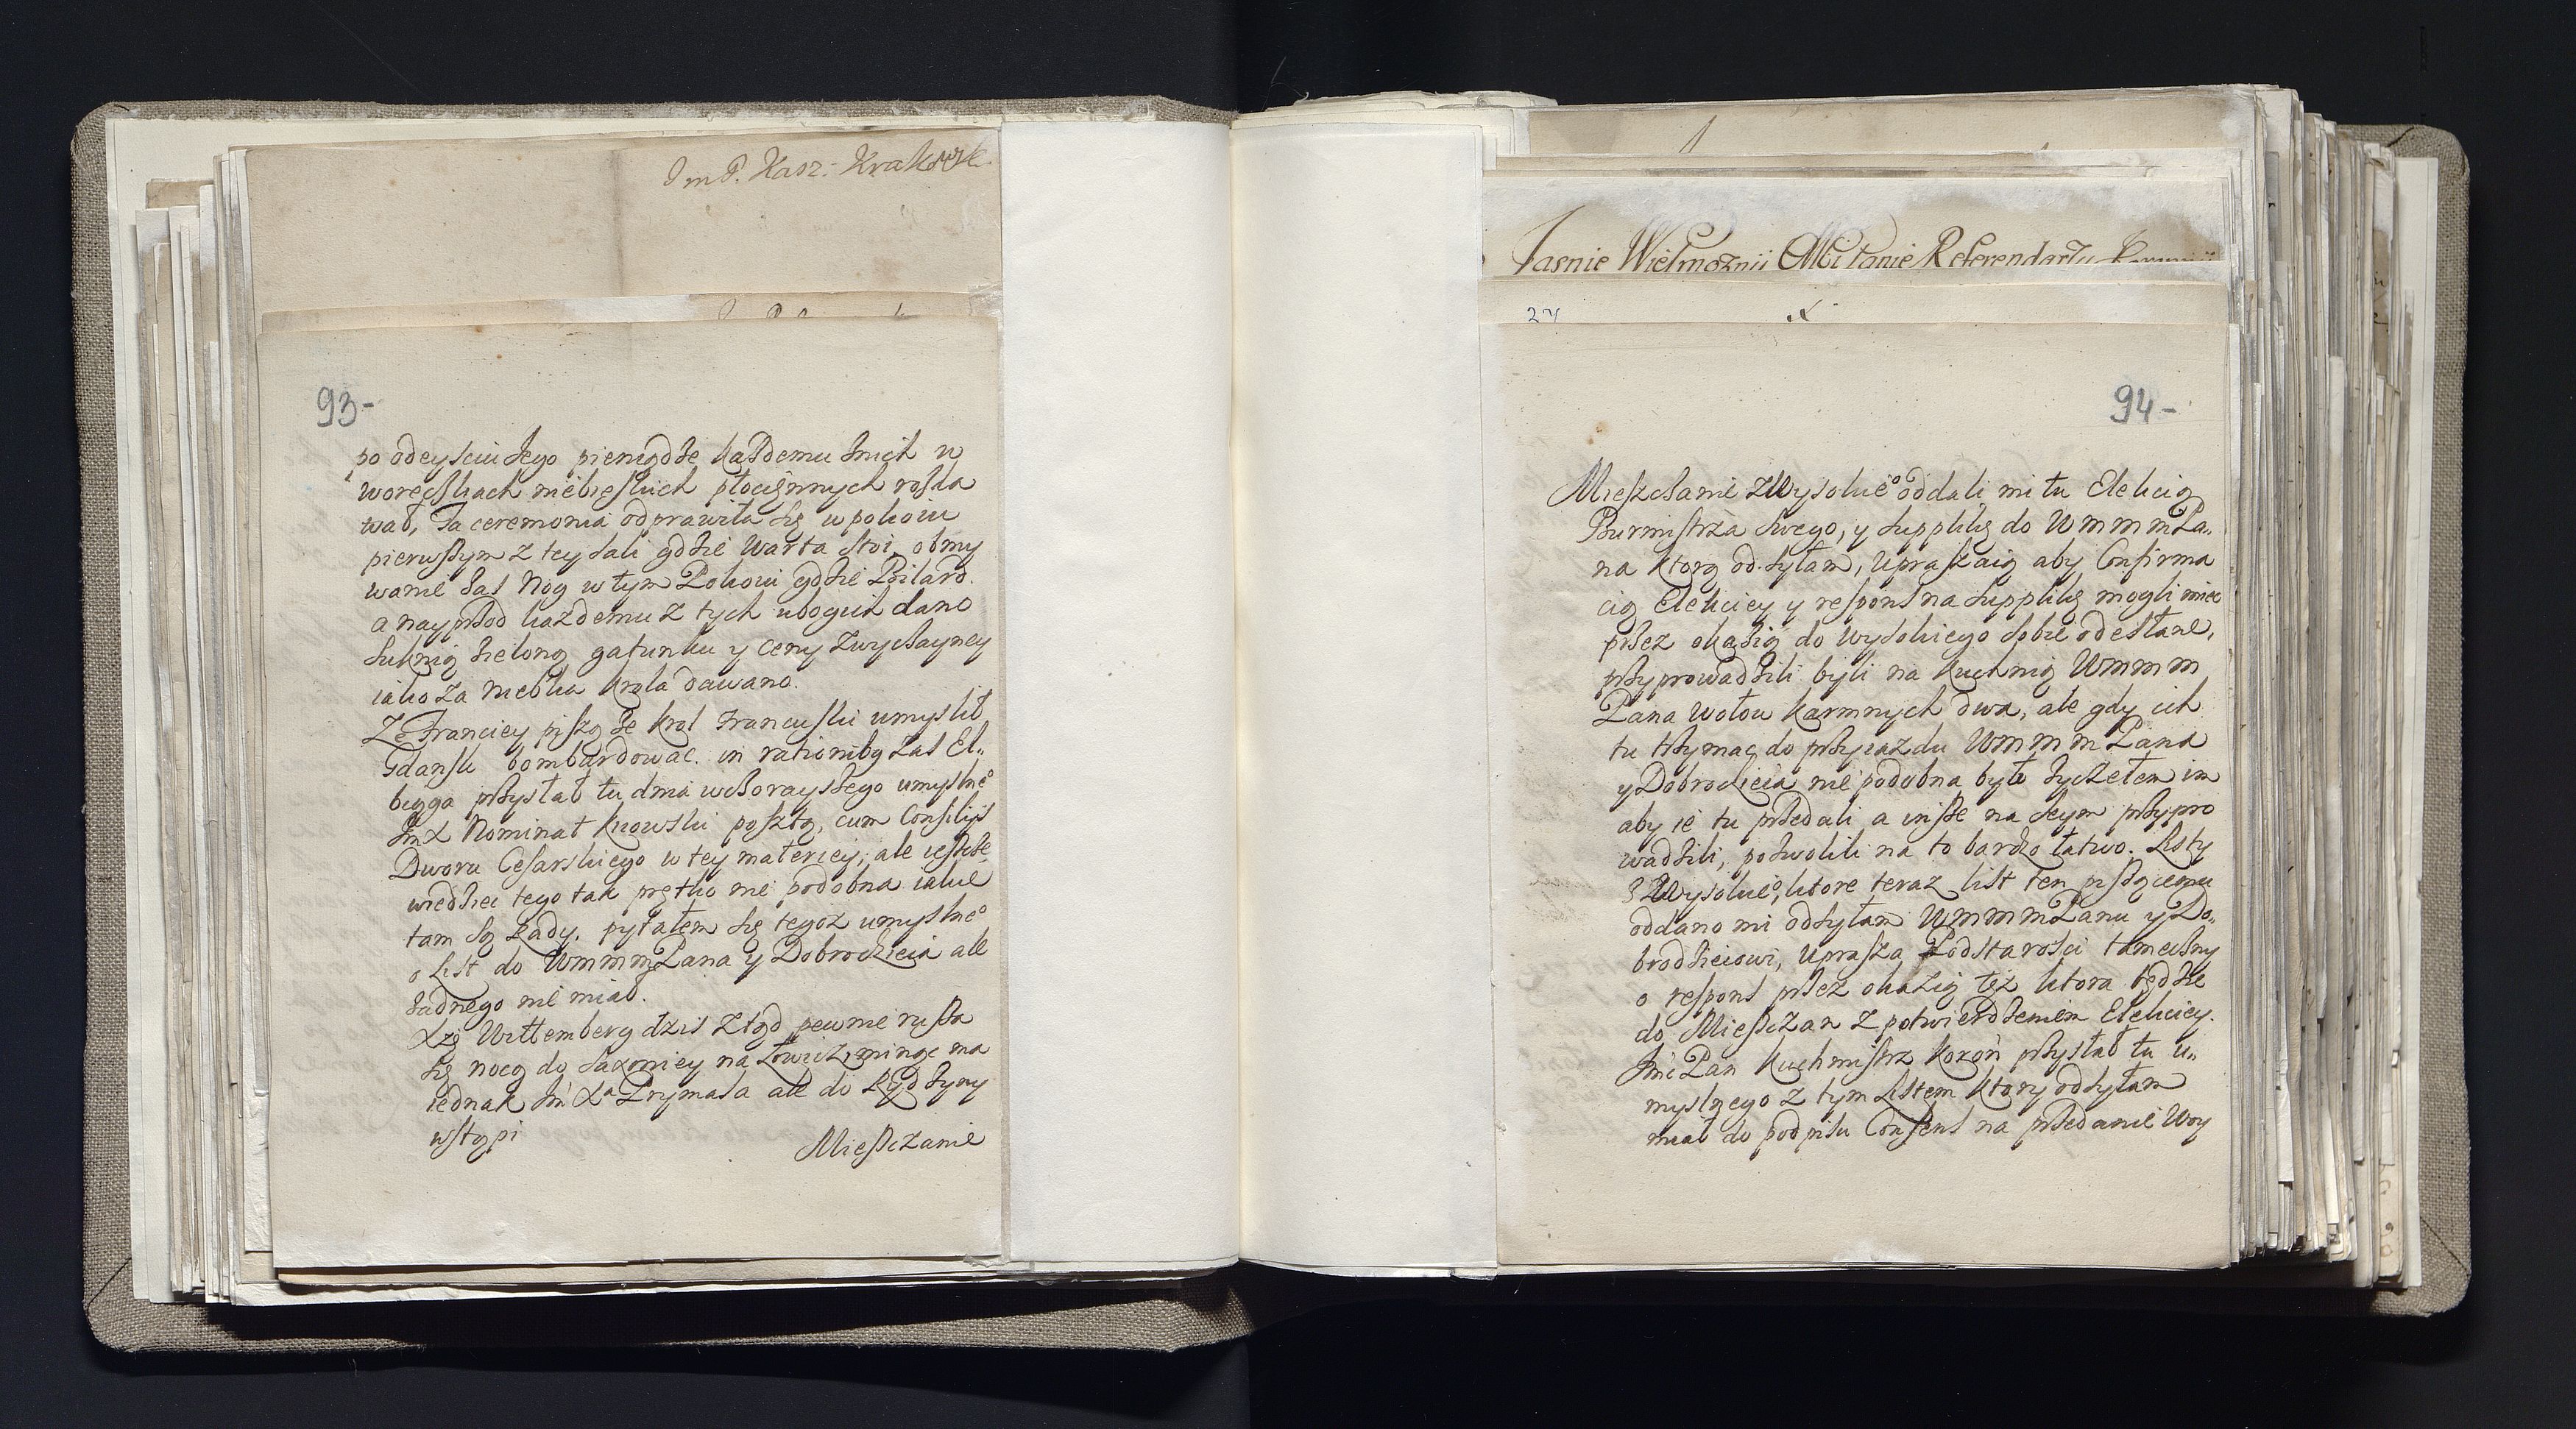 Im P. Kasz: Krakowsk.
93-
po odeysciu Jego pieniądze każdemu znich w
woreczkach niebieskich płociennych rozda
wał, Ta ceremonia odprawiła się w pokoiu
pierwszym z tey sali gdzie Warta stoi, obmy
wanie zas Nog w tym Pokoiu gdzie Bilard.
a nayprzod każdemu z tych ubogich dano
suknią zieloną gatunku y ceny zwyczayney
iako za niebka krola dawano.
Z Franciey piszą że krol Francuski umyslił
Gdansk bombardowac. in rationibq zas El-
bięga przysłał tu dnia wczorayszego umyslne°
Im X Nominat kiiowski posztą, cum Consilijs
Dworu Cesarskiego w tey materiey, ale ieszcze
wiedziec tego tak prętko nie podobna iakie
tam są Rady. pytałem się tegoż umyslne°
o List do WmmmPana y Dobrodzieia ale
żadnego nie miał.
Xżę Wittemberg dzis ztąd pewnie rusza
się nocą do Saxoniey na Łowicz, minąc ma
iednak Im Xa Prymasa ale do Rydzyny
wstąpi
Mieszczanie
Jasnie Wielmoznii Mci Panie Referendarzu
24
94-
Mieszczanie z Wysokie° oddali mi tu Elekcią
Burmistrza swego, y supplikę do WmmmPa-
na ktorą odsyłam, upraszaią aby Confirma
cią Elekciey y respons na supplikę mogli miec
przez okazią do Wysokiego sobie odesłane,
przyprowadzili byli na kuchnią Wmmm
Pana Wołow karmnych dwa, ale gdy ich
tu trzymac do przyiazdu Wmmm Pana
y Dobrodzieia nie podobna było życzełem im
aby ie tu przedali a insze na Seym przypro
wadzili, pozwolili na to bardzo łatwo. Listy
z Wysokie°, ktore teraz list ten piszącemu
oddano mi odsyłam WmmmPanu y Do-
brodzieiowi, uprasza Podstarosci tameczny
o respons przez okazią też ktora będzie
do Mieszczan z potwierdzeniem Elekciey.
Imc Pan Kuchmistrz Koron przysłał tu u-
myslnego z tym Listem ktory odsyłam
miał do podpisu Consens na przedanie Woy